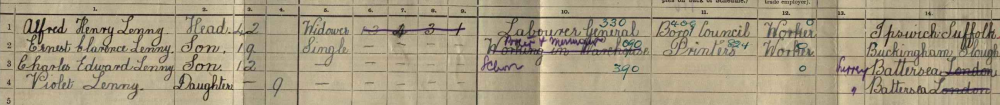 1. 2. 3. 4. 5. 6. 7. 8. 9. 10. 11. 12. 13.
1 Alfred Henry Lenny Head 42 Widower 4 3 1 Labourer General 330 Boro' Council 409 Worker 0 Ipswich Suffolk
2 Ernest Clarence Lenny. Son. 19 Single — — — — Working in Warehouse 090 Printers 524 Worker Buckingham Slough
3 Charles Edward Lenny Son. 12 — — — — — School 390 0 Surrey Battersea London
4 Violet Lenny. Daughter 9 — — — — — — — — " Battersea London
5